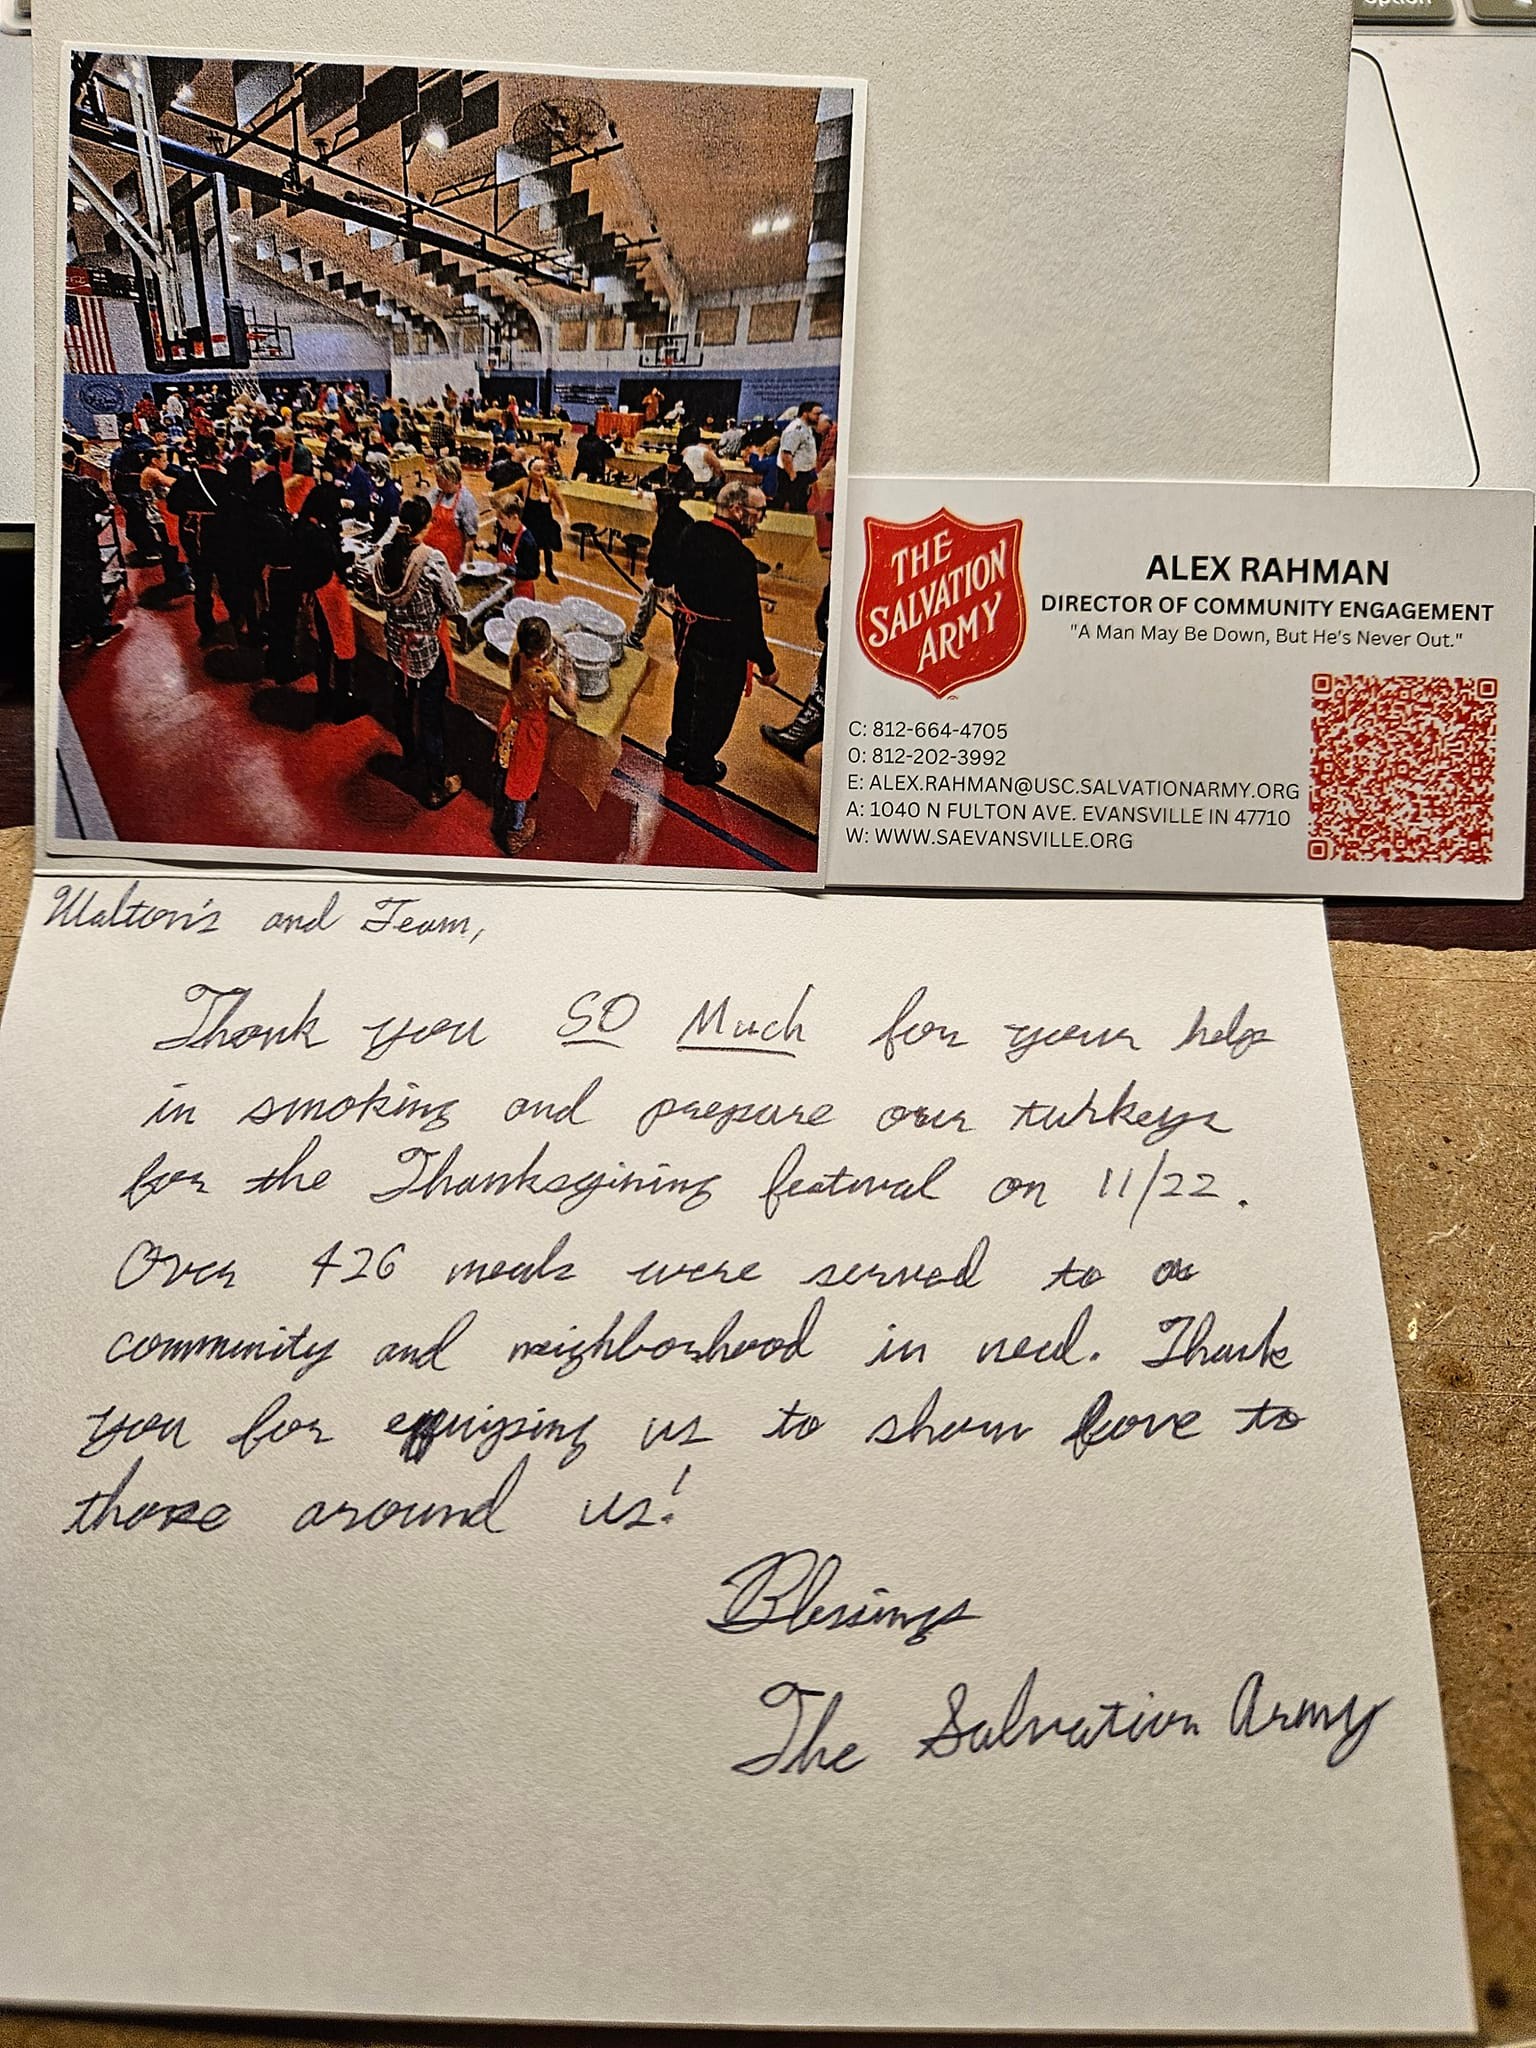 option
THE
SALVATION
ARMY
ALEX RAHMAN
DIRECTOR OF COMMUNITY ENGAGEMENT
"A Man May Be Down, But He's Never Out."
C: 812-664-4705
O: 812-202-3992
E: ALEX.RAHMAN@USC.SALVATIONARMY.ORG
A: 1040 N FULTON AVE. EVANSVILLE IN 47710
W: WWW.SAEVANSVILLE.ORG
Walton's and Team,
Thank you SO Much for your help
in smoking and prepare our turkeys
for the Thanksgiving festival on 11/22.
Over 426 meals were served to a
community and neighborhood in need. Thank
you for equiping us to show love to
those around us!
Blessings
The Salvation Army